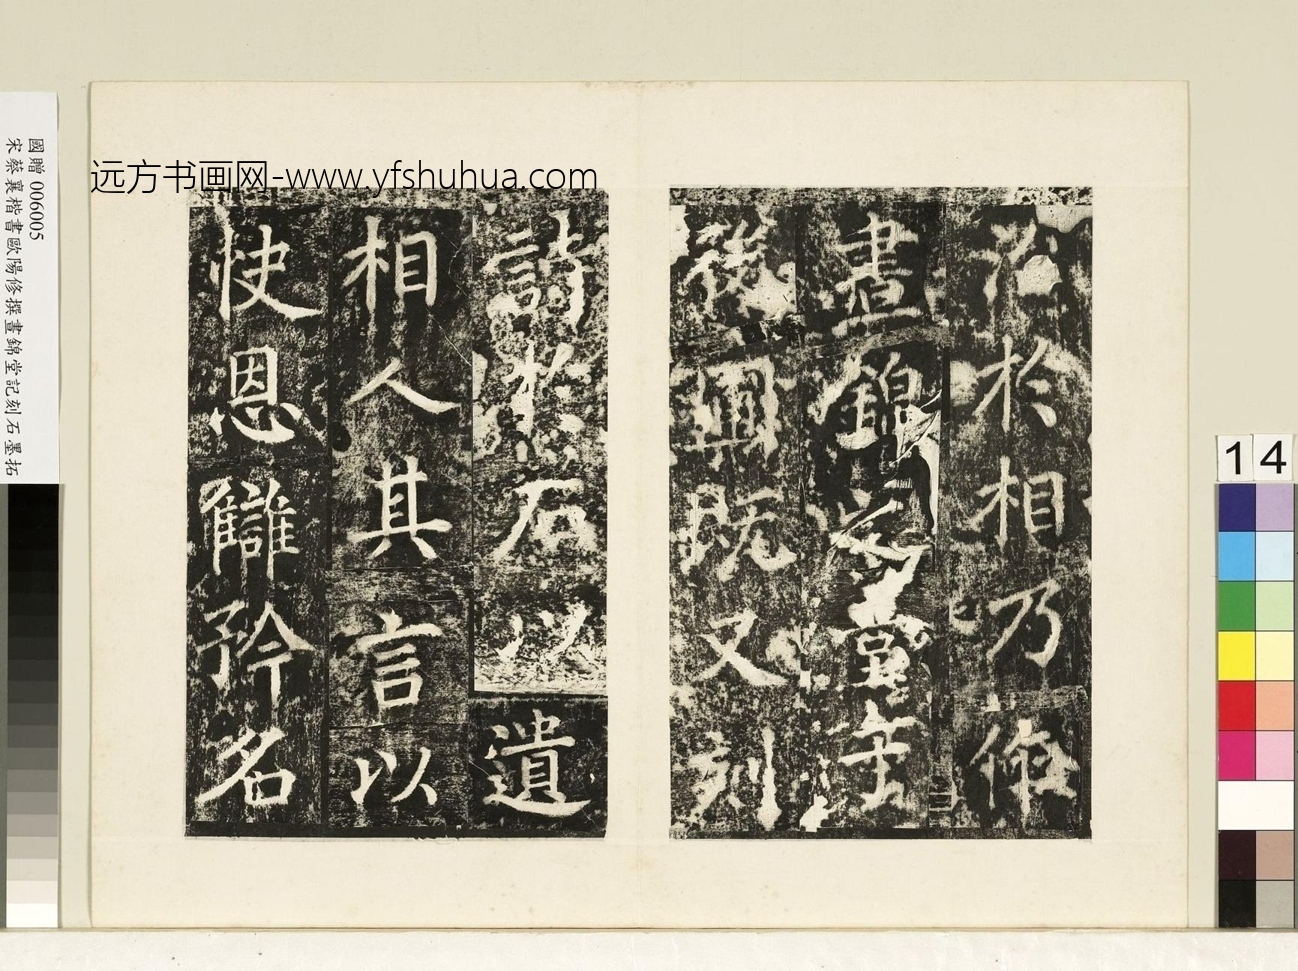 远方书画网-www.yfshuhua.com
國贈 006005
宋蔡襄楷書歐陽修撰晝錦堂記刻石墨拓
14
治於相乃作
晝錦堂于
後園既又刻
詩於石以遺
相人其言以
快恩讎矜名